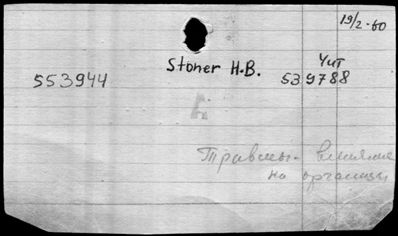 19/2-60
Stoner H.B.
Чит
553944
539788
Травмы - влияние
на организм